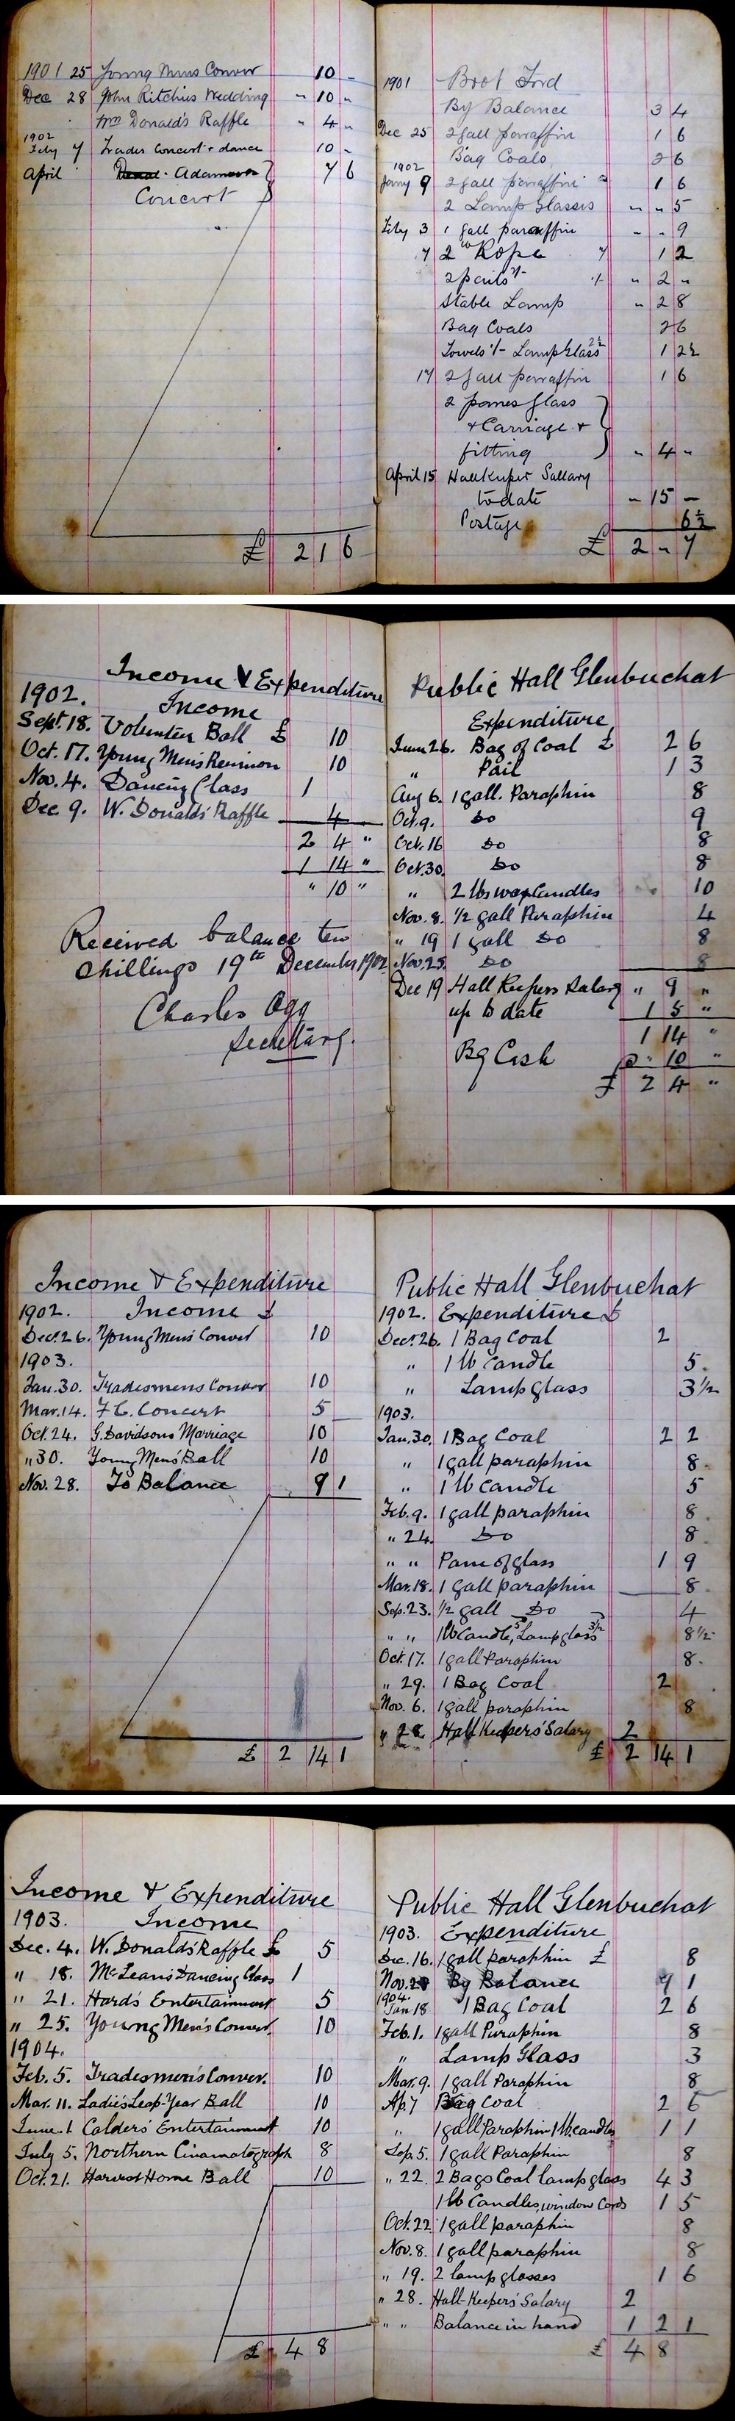 1901 25 Young Mens Conver 10 -
Dec 28 John Ritchies Wedding " 10 "
Wm Donald's Raffle " 4 "
1902
Feby 7 Trades Concert + dance 10 -
April Adamson } 7 6
Concert
£ 2 1 6
1901 Brot Ford
By Balance 3 4
Dec 25 2 gall parraffin 1 6
Bag Coals 2 6
1902
Jany 9 2 gall parraffin 1 6
2 Lamp Glasses " " 5
Feby 3 1 gall paraffin " " 9
7 2 Rope 7 1 2
2 pails 1/- " 2 "
Stable Lamp " 2 8
Bag Coals 2 6
Towels 1/- Lamp Glass 2½ 1 2½
14 2 gall parraffin 1 6
2 panes glass
+ Carriage +
fitting } " 4 "
April 15 Hallkeeper Sallary
to date " 15 "
Postage 6½
£ 2 " 7
Income & Expenditure
1902. Income
Sept. 18. Volunteer Ball £ 10
Oct. 17. Young Men's Reunion 10
Nov. 4. Dancing Class 1
Dec 9. W. Donald's Raffle 4
2 4 "
1 14 "
" 10 "
Received balance ten
shillings 19th December 1902
Charles Ogg
Secretary.
Public Hall Glenbuchat
Expenditure
June 26. Bag of Coal £ 2 6
" Pail 1 3
Aug 6. 1 gall. Paraphin 8
Oct. 9. Do 9
Oct. 16 Do 8
Oct. 30. Do 8
" 2 lbs wax Candles 10
Nov. 8. 1/2 gall Paraphin 4
" 19 1 gall Do 8
Nov. 25. Do 8
Dec 19 Hall Keepers Salary " 9 "
up to date 1 5 "
1 14 "
By Cash " 10 "
£ 2 4 "
Income & Expenditure
1902. Income £
Dec. 26. Young Men's Conver 10
1903.
Jan. 30. Tradesmens Conver 10
Mar. 14. F C. Concert 5
Oct. 24. G. Davidsons Marriage 10
" 30. Young Men's Ball 10
Nov. 28. To Balance 9 1
£ 2 14 1
Public Hall Glenbuchat
1902. Expenditure £
Dec. 26. 1 Bag Coal 2
" 1 lb Candle 5.
" Lamp glass 3 1/2
1903.
Jan. 30. 1 Bag Coal 2 2
" 1 gall paraphin 8.
" 1 lb Candle 5
Feb. 9. 1 gall paraphin 8.
" 24. Do 8.
" " Pane of glass 1 9
Mar. 18. 1 gall paraphin 8.
Sep. 23. 1/2 gall Do 4
" " 1 lb Candle, 5 Lamp glass 3½ 8 1/2
Oct. 17. 1 gall Paraphin 8.
" 29. 1 Bag Coal 2
Nov. 6. 1 gall paraphin 8
" 28 Hall Keepers' Salary 2
£ 2 14 1
Income & Expenditure
1903. Income
Dec. 4. W. Donald's Raffle £ 5
" 18. McLean's Dancing Class 1
" 21. Hard's Entertainment 5
" 25. Young Men's Conver. 10
1904.
Feb. 5. Tradesmen's Conver. 10
Mar. 11. Ladies Leap-Year Ball 10
June. 1 Calders' Entertainment 10
July 5. Northern Cinamatograph 8
Oct. 21. Harvest Home Ball 10
£ 4 8
Public Hall Glenbuchat
1903. Expenditure
Dec. 16. 1 gall paraphin £ 8
Nov. 28 By Balance 9 1
1904.
Jan 18 1 Bag Coal 2 6
Feb. 1. 1 gall Paraphin 8
" Lamp Glass 3
Mar. 9. 1 gall Paraphin 8
Ap. 7 Bag Coal 2 6
" 1 gall Paraphin 1 lb. candles 1 1
Sep. 5. 1 gall Paraphin 8
" 22. 2 Bags Coal lamp glass 4 3
1 lb Candles, window Cords 1 5
Oct. 22 1 gall paraphin 8
Nov. 8. 1 gall paraphin 8
" 19. 2 lamp glasses 1 6
" 28. Hall-Keepers' Salary 2
" " Balance in hand 1 2 1
£ 4 8